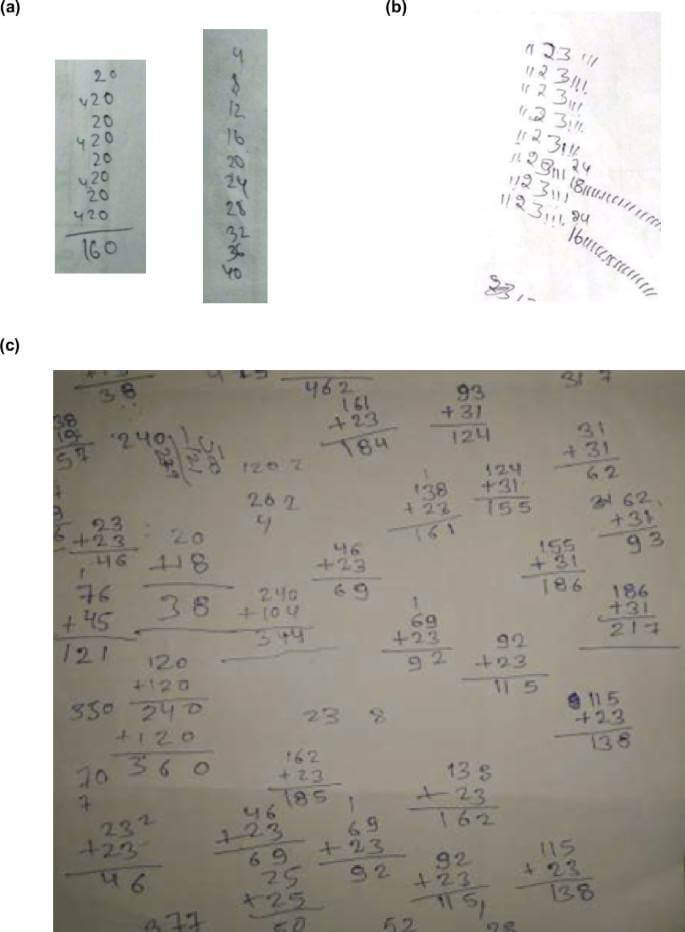 (a)
20
420
20
420
20
420
20
420
160
4
8
12
16
20
24
28
32
36
40
(b)
11 23 111
11 23 111
11 23 111
11 23 111
11 23 111
24
18
11 23 111
24
16
(c)
38
462
161
+23
184
93
+31
124
317
31
+31
62
57
240
1202
202
4
138
+23
161
124
+31
155
62
+31
93
23
+23
46
20
+18
38
46
+23
69
155
+31
186
76
+45
121
240
+104
344
1
69
+23
92
92
+23
115
186
+31
217
120
+120
240
+120
360
350
23 8
115
+23
138
70
7
162
+23
185
138
+23
162
232
+23
46
46
+23
69
1
69
+23
92
92
+23
115
115
+23
138
25
+25
50
377
52
28